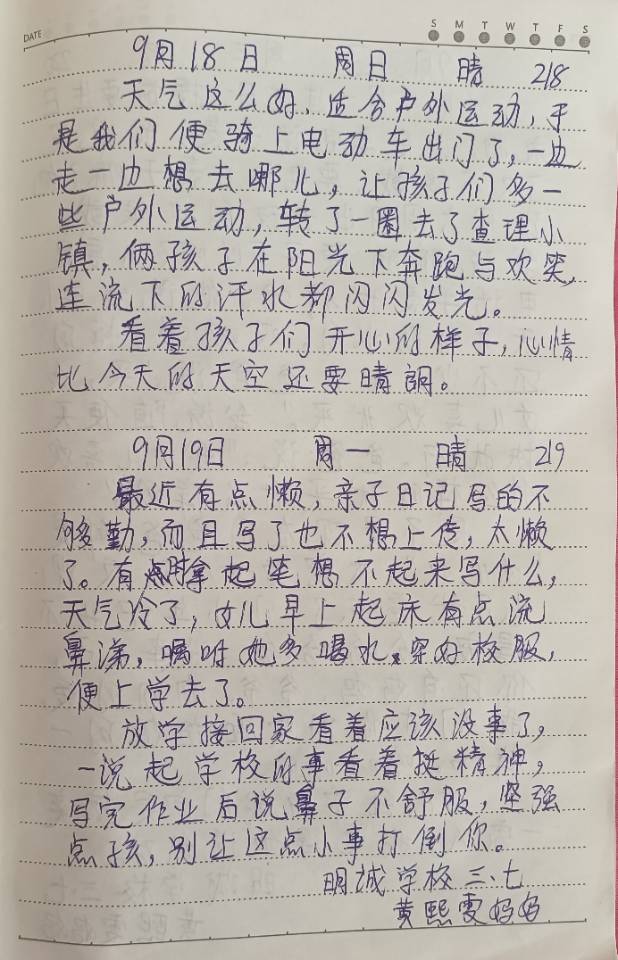 DATE
S M T W T F S
9月18日 周日 晴 218
天气这么好,适合户外运动,于
是我们便骑上电动车出门了,一边
走一边想去哪儿,让孩子们多一
些户外运动,转了一圈去了查理小
镇,俩孩子在阳光下奔跑与欢笑,
连流下的汗水都闪闪发光。
看着孩子们开心的样子,心情
比今天的天空还要晴朗。
9月19日 周一 晴 219
最近有点懒,亲子日记写的不
够勤,而且写了也不想上传,太懒
了。有时拿起笔想不起来写什么,
天气冷了,女儿早上起床有点流
鼻涕,嘱咐她多喝水,穿好校服,
便上学去了。
放学接回家看着应该没事了,
一说起学校的事看着挺精神,
写完作业后说鼻子不舒服,坚强
点孩,别让这点小事打倒你。
明诚学校三、七
黄熙雯妈妈